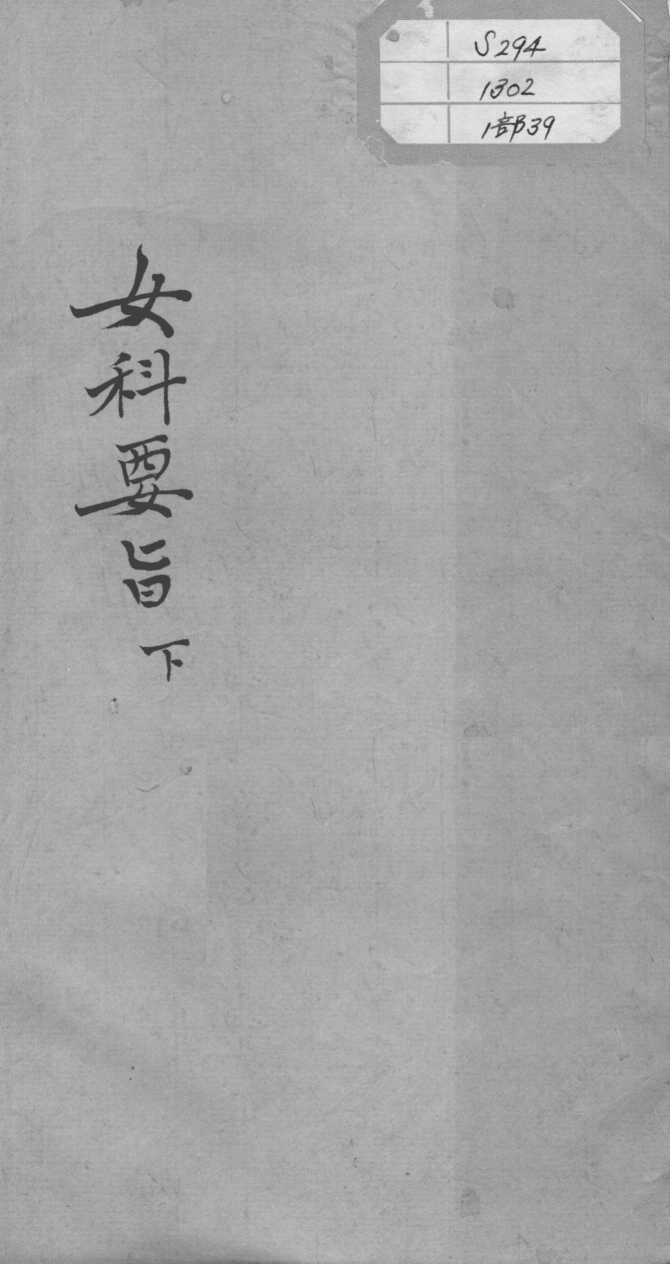 S294
1302
1部39
女科要旨 下